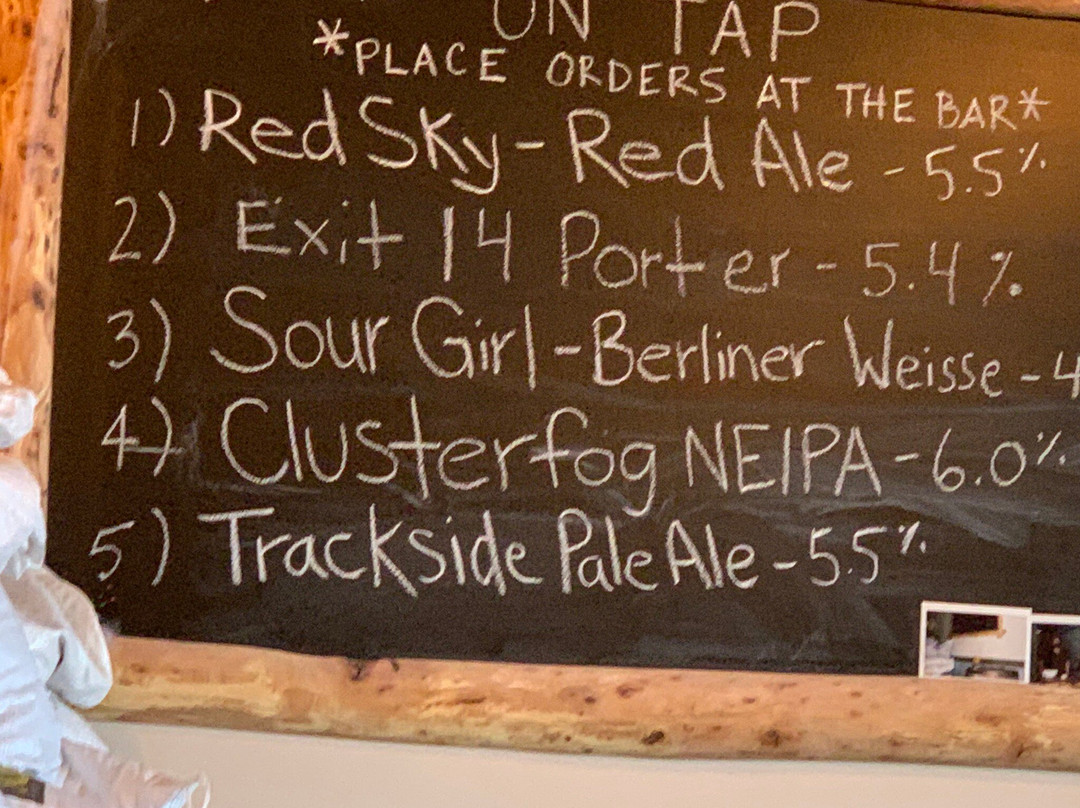 ON TAP
*PLACE ORDERS AT THE BAR*
1) Red Sky - Red Ale - 5.5%
2) Exit 14 Porter - 5.4%
3) Sour Girl - Berliner Weisse - 4
4) Clusterfog NEIPA - 6.0%
5) Trackside Pale Ale - 5.5%